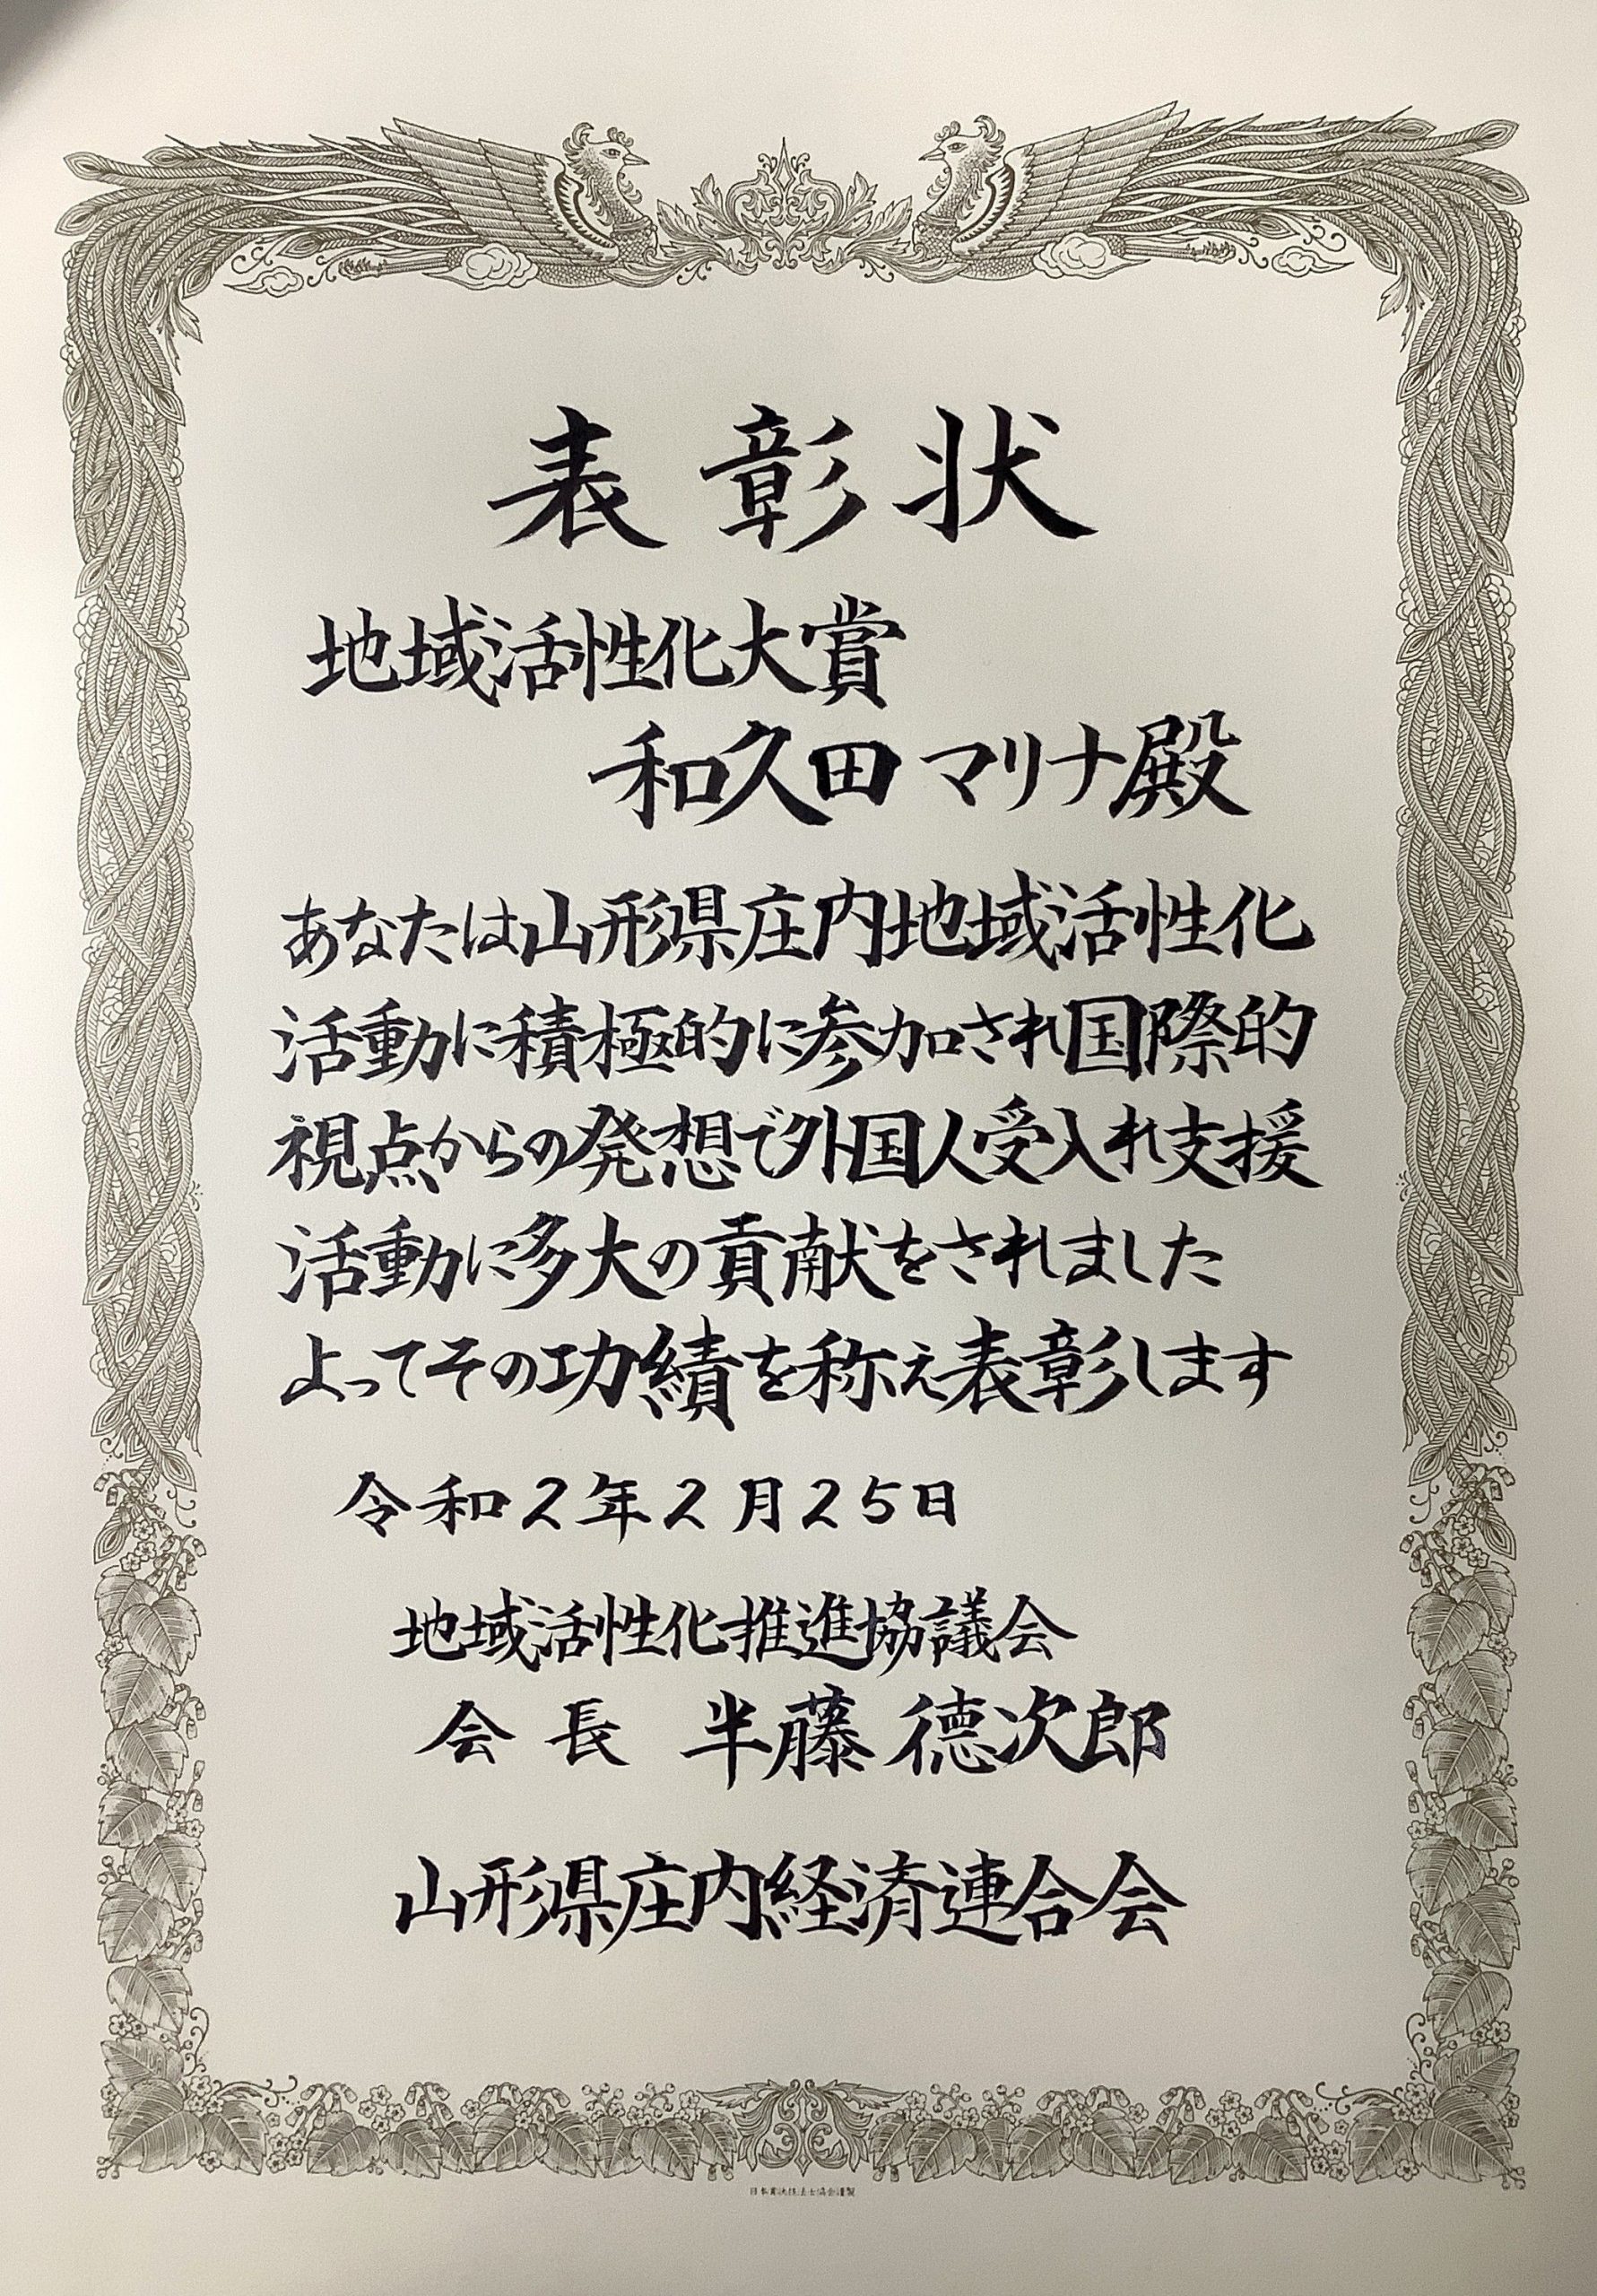 表彰状
地域活性化大賞
和久田マリナ殿
あなたは山形県庄内地域活性化
活動に積極的に参加され国際的
視点からの発想で外国人受入れ支援
活動に多大の貢献をされました
よってその功績を称え表彰します
令和2年2月25日
地域活性化推進協議会
会長 半藤 徳次郎
山形県庄内経済連合会
日本賞状技法士協会謹製